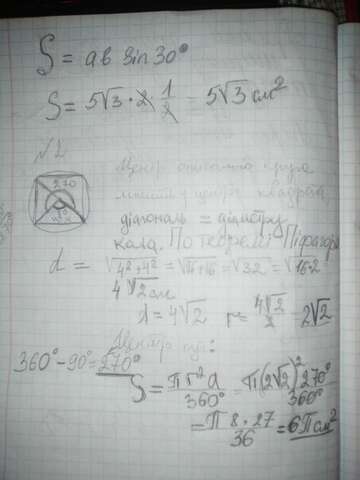 S = ab sin 30°
S = 5√3 · 2 · 1/2 = 5√3 см²
№2
270
90
Центр описаного круга
лежить у центрі квадрата,
діагональ = діаметру
кола. По теоремі Піфагора
d = √4²+4² = √16+16 = √32 = √16·2
4√2 см
d = 4√2 r = 4√2/2 2√2
360° - 90° = 270°
S = πr²a/360° = π(2√2)² 270°/360°
= π 8 · 27/36 = 6π см²